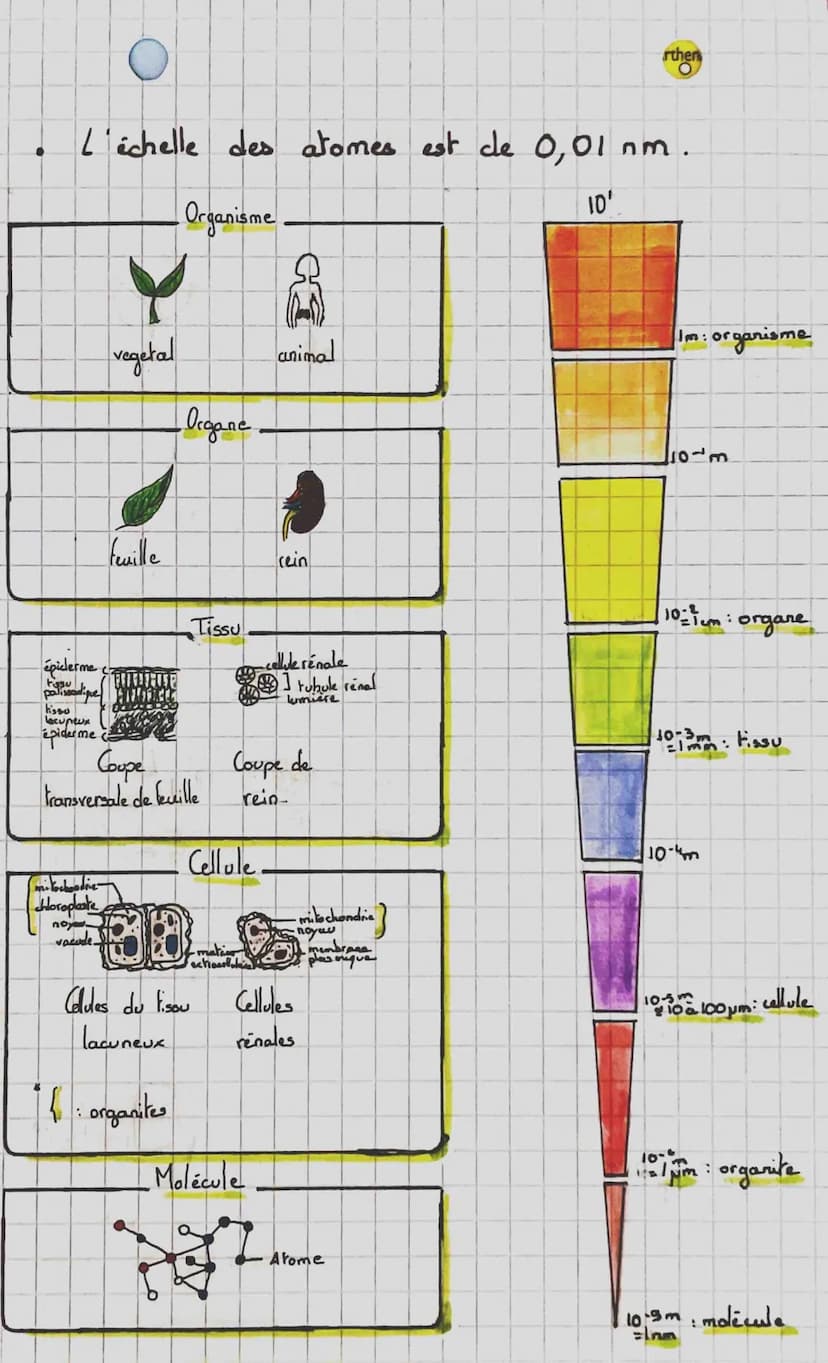 rthers
. L'échelle des atomes est de 0,01 nm.
Organisme
vegetal
animal
Organe
feuille
rein
Tissu
épiderme
tissu
palissadique
tissu
lacuneux
épiderme
cellule rénale
tubule rénal
lumière
Coupe
transversale de feuille
Coupe de
rein.
Cellule
mitochondrie
chloroplaste
noyau
vacuole
mitochondrie
noyau
membrane
plasmique
Cellules du tissu
lacuneux
Cellules
rénales
* { : organites
Molécule
Atome
10¹
1m : organisme
10⁻¹m
10⁻²
=1cm : organe
10⁻³m
=1mm : tissu
10⁻⁴m
10⁻⁵m
≈ 10 à 100µm : cellule
10⁻⁶m
=1µm : organite
10⁻⁹m
=1nm : molécule